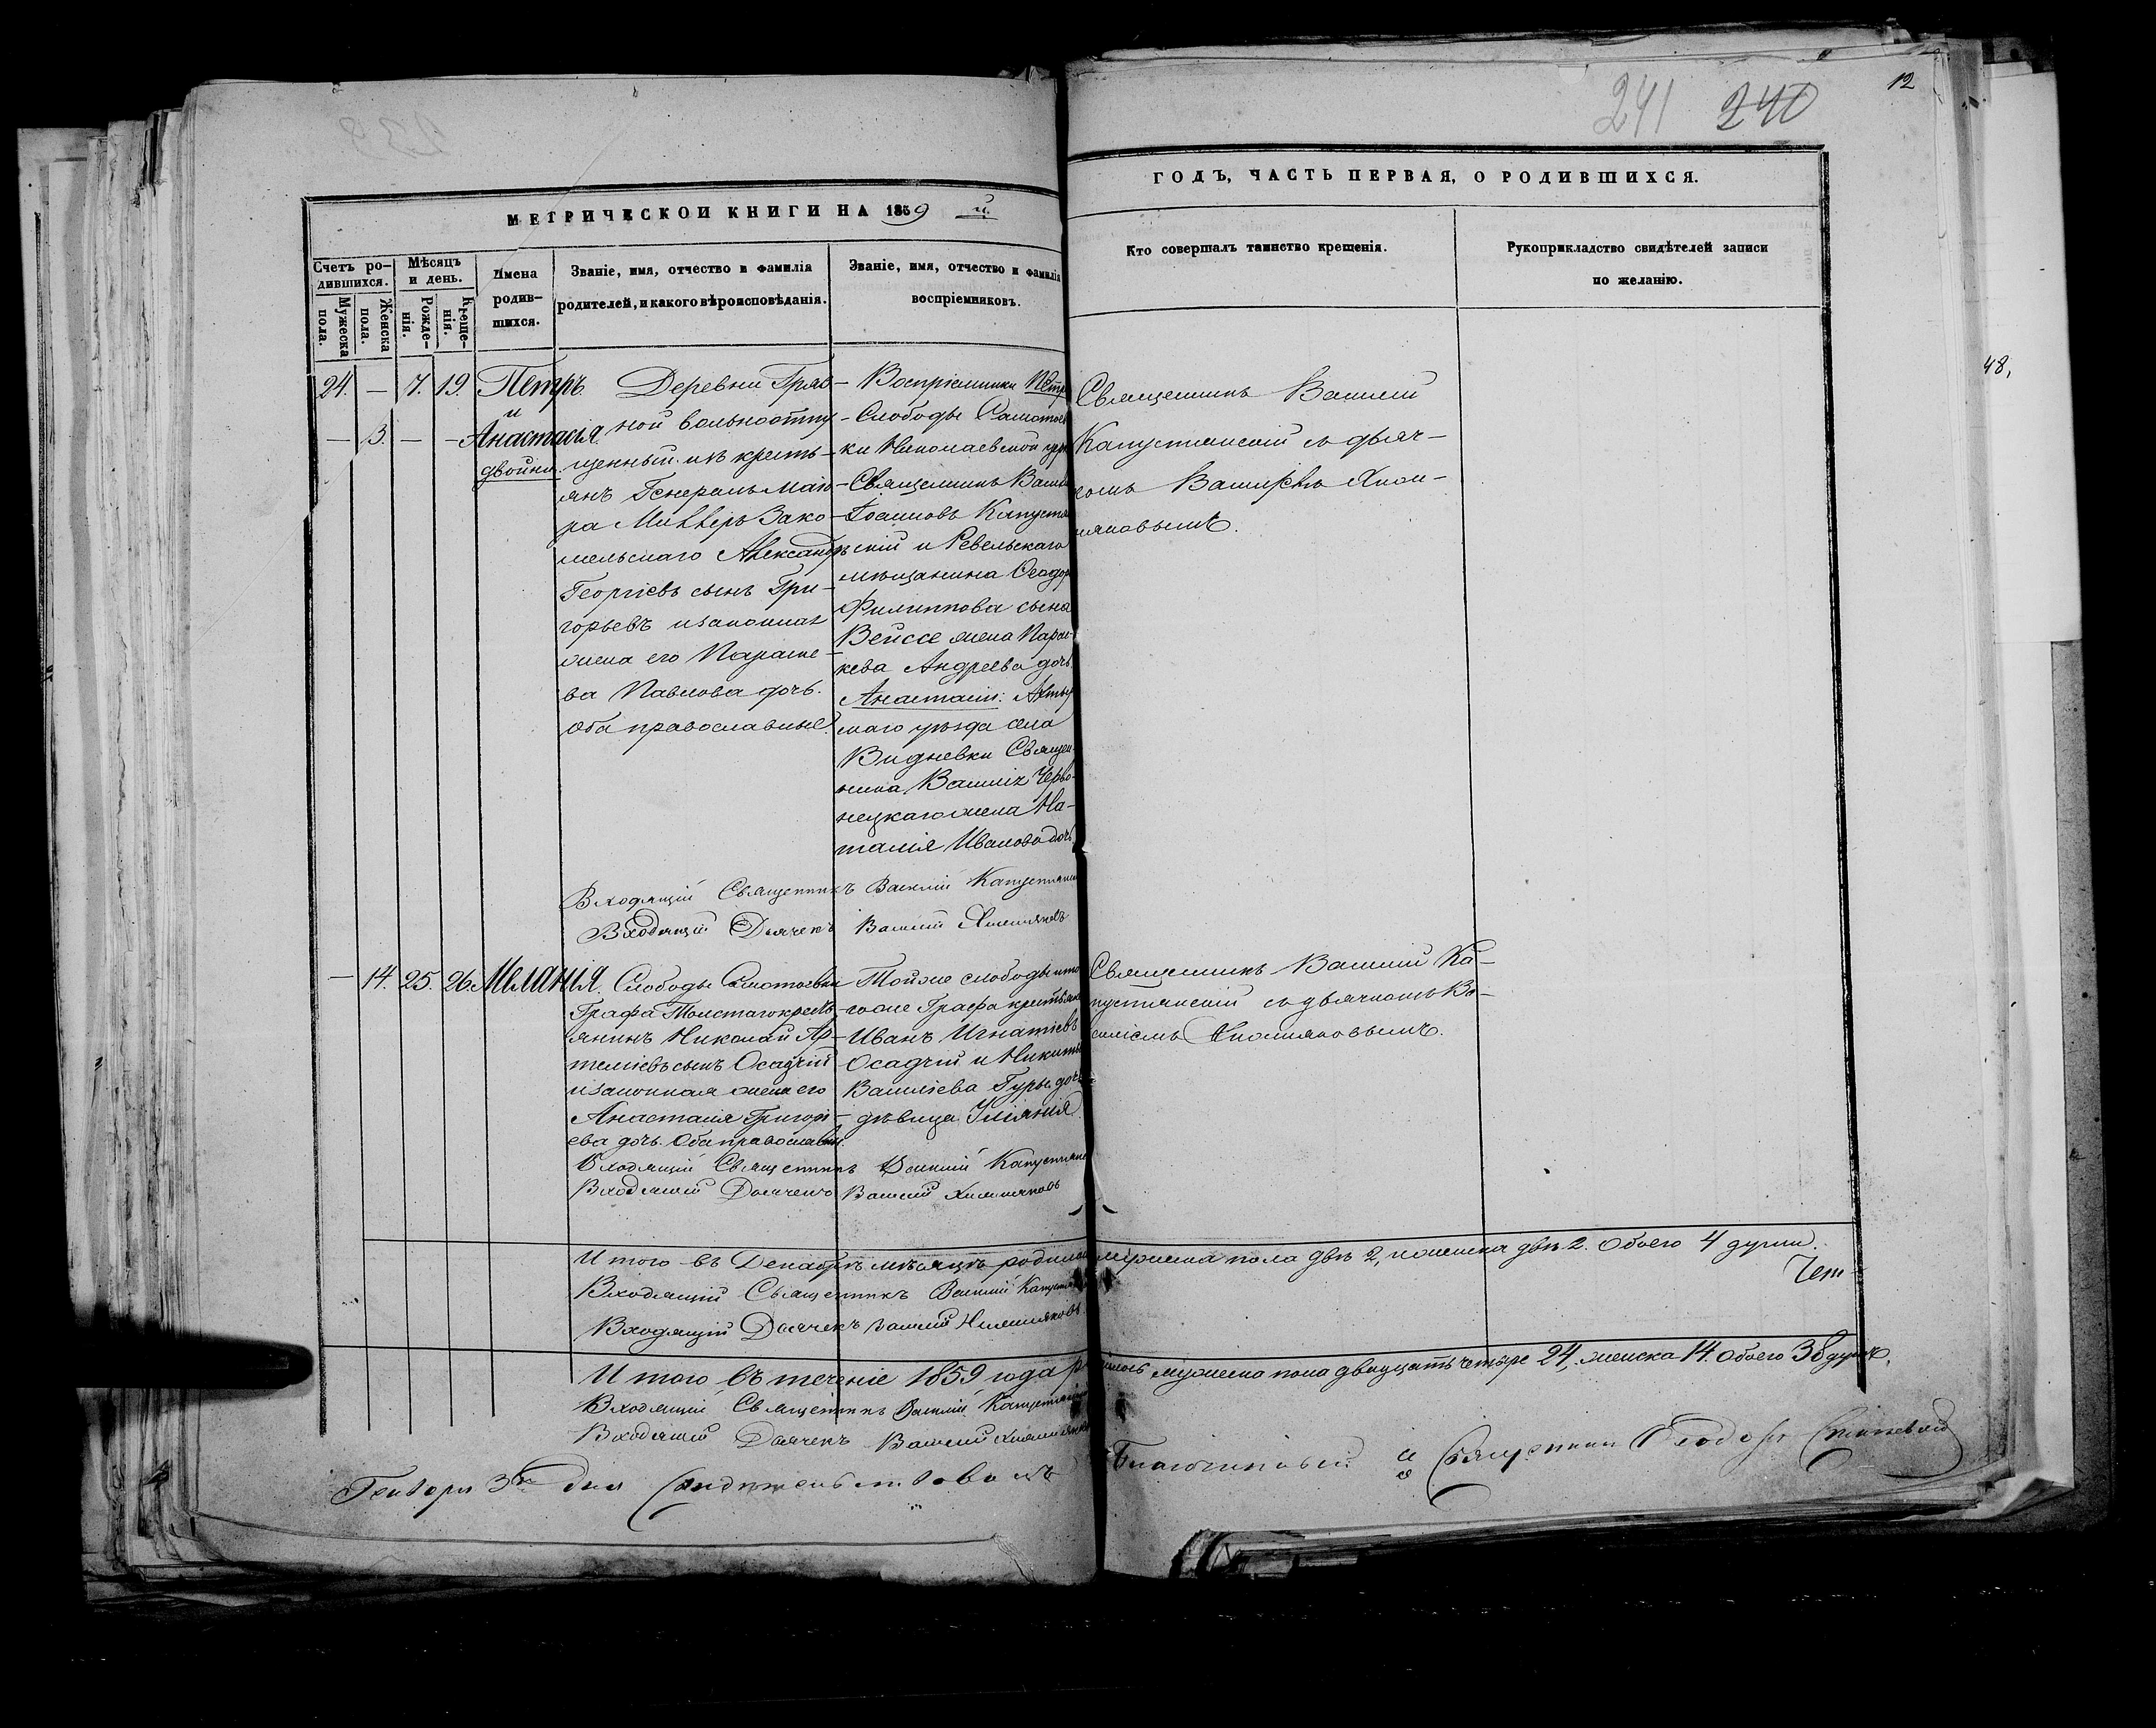 241 240
12
МЕТРИЧЕСКОЙ КНИГИ НА 1859 й
ГОДЪ, ЧАСТЬ ПЕРВАЯ, О РОДИВШИХСЯ.
Счетъ ро-
дившихся.
Мужеска пола.
Женска пола.
Мѣсяцъ
и день.
Рожде-
нія.
Креще-
нія.
Имена
родив-
шихся.
Званіе, имя, отчество и фамилія
родителей, и какого вѣроисповѣданія.
Званіе, имя, отчество и фамилія
воспріемниковъ.
Кто совершалъ таинство крещенія.
Рукоприкладство свидѣтелей записи
по желанію.
48,
24. — 7. 19. Петръ
и
— 3. — — Анастасія
двойни
Деревни Гряз-
ной вольноотпу-
щенный изъ кресть-
янъ Генералъ Маіо-
ра Миллеръ Зако-
мельскаго Александръ
Георгіевъ сынъ Гри-
горьевъ и законная
жена его Параске-
ва Павлова дочь.
Оба православные.
Воспріемники Петр
Слободы Самотоев
ки Николаевской
Священникъ Васил
Іоанновъ Капустян
скій и Ревельскаго
мѣщанина Ѳеодор
Филиппова сына
Вейссе жена Парас-
кева Андреева дочь.
Анастасіи:
скаго уѣзда села
Видневки Священ-
ника Василія
нецкаго жена На-
талія Иванова дочь
Священникъ Василій
Капустянскій съ дьяч-
комъ Василіемъ
Входящій Священникъ Василій Капустянск
Входящій Дьячекъ Василій
— 14. 25. 26. Меланія.
Слободы Самотоевки
Графа Толстаго кресть-
янинъ Николай Ар-
теміевъ сынъ Осадчій
и законная жена его
Анастасія Григорі-
ева дочь. Оба православн.
Той же слободы и то
гоже Графа крестьяне
Иванъ Игнатіевъ
Осадчій и Никиты
Василіева Гуры дочь
дѣвица Уліянія
Священникъ Василій Ка-
пустянскій съ дьячкомъ Ва-
силіемъ
Входящій Священникъ Василій Капустянс
Входящій Дьячекъ Василій
Итого въ Декабрѣ мѣсяцѣ родилось мужеска пола два 2, женска двѣ 2. Обоего 4 души.
Чет
Входящій Священникъ Василій Капустян
Входящій Дьячекъ Василій
Итого въ теченіе 1859 года родилось мужеска пола двадцать четыре 24, женска 14. Обоего 38 душъ.
Входящій Священникъ Василій Капустянск
Входящій Дьячекъ Василій
Генваря 3 дня Свидѣтельствовалъ Благочинный Священникъ Ѳеодоръ